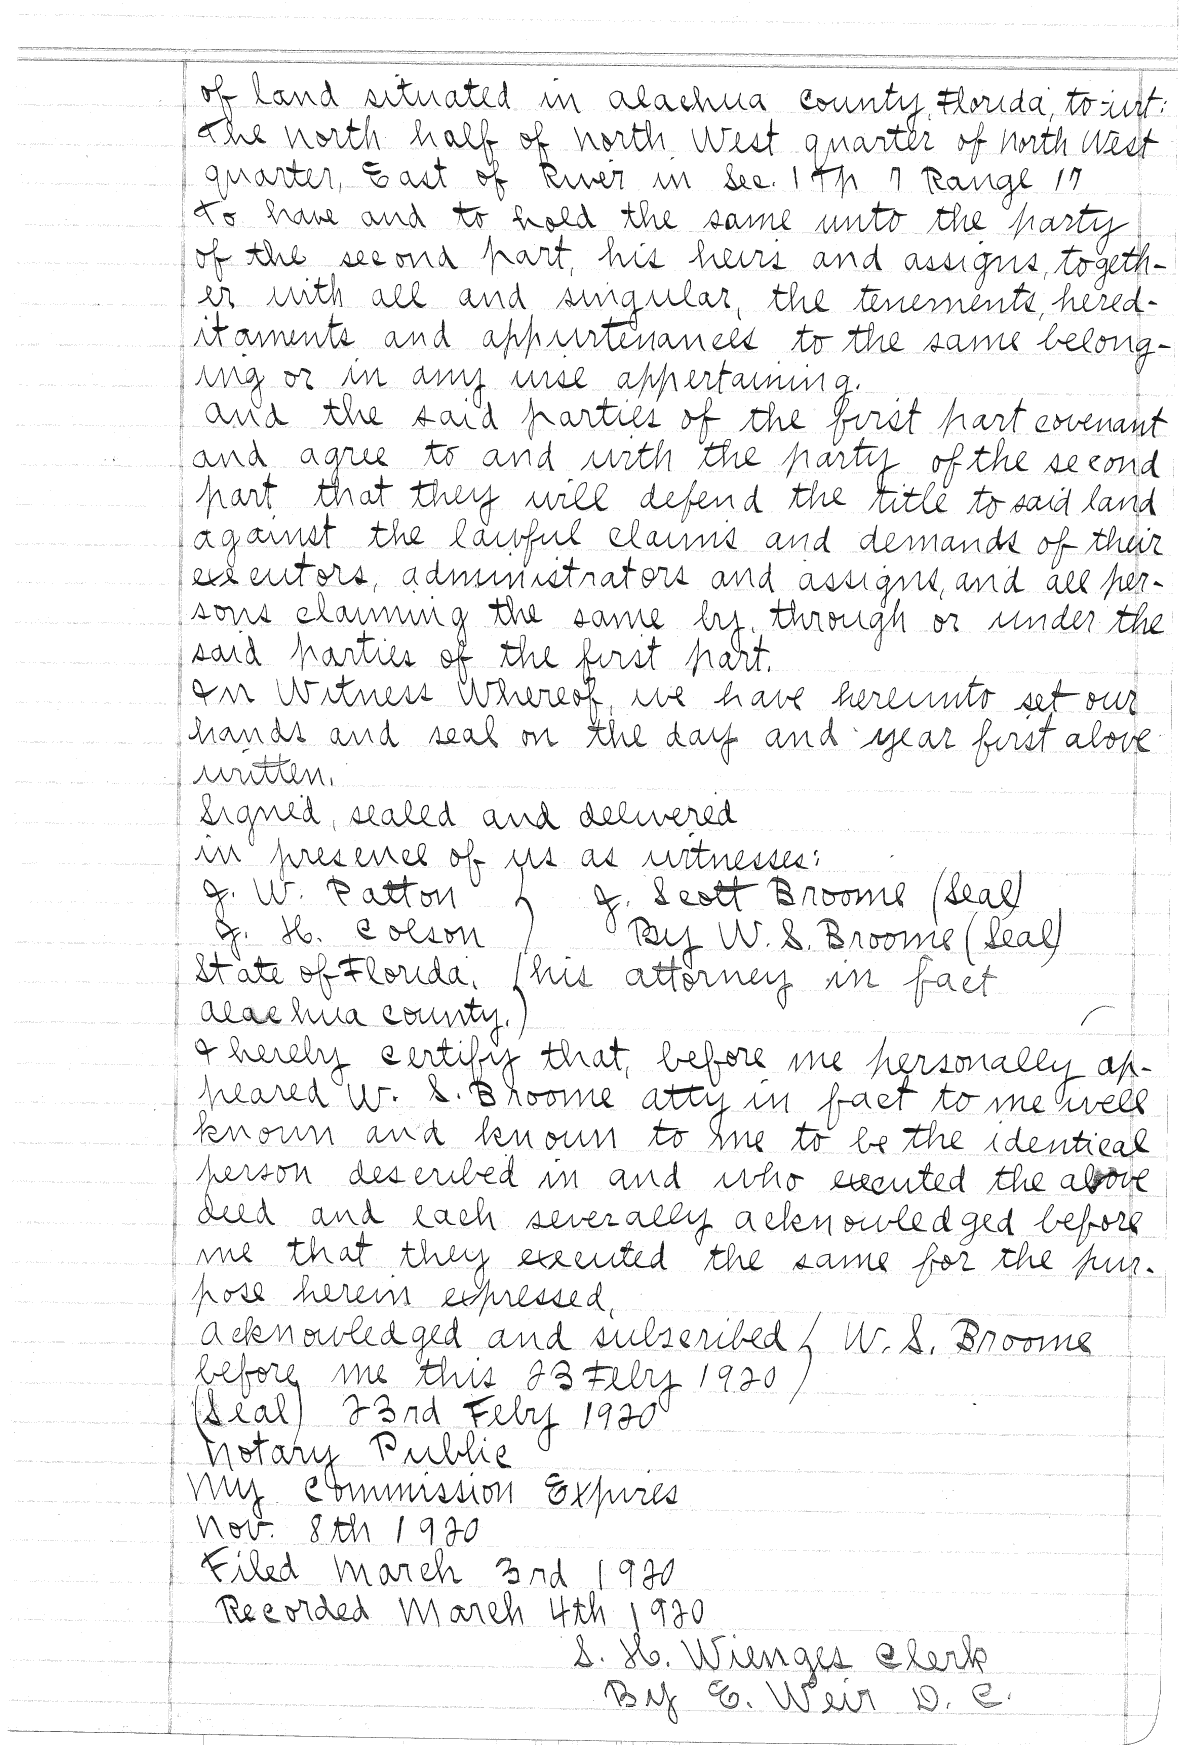 of land situated in Alachua County, Florida, to-wit:
The North half of North West quarter of North West
quarter, East of River in Sec. 1 Tp 7 Range 17
To have and to hold the same unto the party
of the second part, his heirs and assigns, togeth-
er with all and singular, the tenements, hered-
itaments and appurtenances to the same belong-
ing or in any wise appertaining.
And the said parties of the first part covenant
and agree to and with the party of the second
part that they will defend the title to said land
against the lawful claims and demands of their
executors, administrators and assigns, and all per-
sons claiming the same by, through or under the
said parties of the first part.
In Witness Whereof, we have hereunto set our
hands and seal on the day and year first above
written.
Signed, sealed and delivered
in presence of us as witnesses:
J. W. Patton ) J. Scott Broome (Seal)
J. H. Colson ) By W. S. Broome (Seal)
State of Florida. ( his attorney in fact
Alachua County. )
I hereby certify that, before me personally ap-
peared W. S. Broome atty in fact to me well
known and known to me to be the identical
person described in and who executed the above
deed and each severally acknowledged before
me that they executed the same for the pur-
pose herein expressed,
Acknowledged and subscribed ( W. S. Broome
before me this 23 Feby 1920 )
(Seal) 23rd Feby 1920
Notary Public
My Commission Expires
Nov. 8th 1920
Filed March 3rd 1920
Recorded March 4th 1920
S. H. Wienges Clerk
By E. Weir D. C.